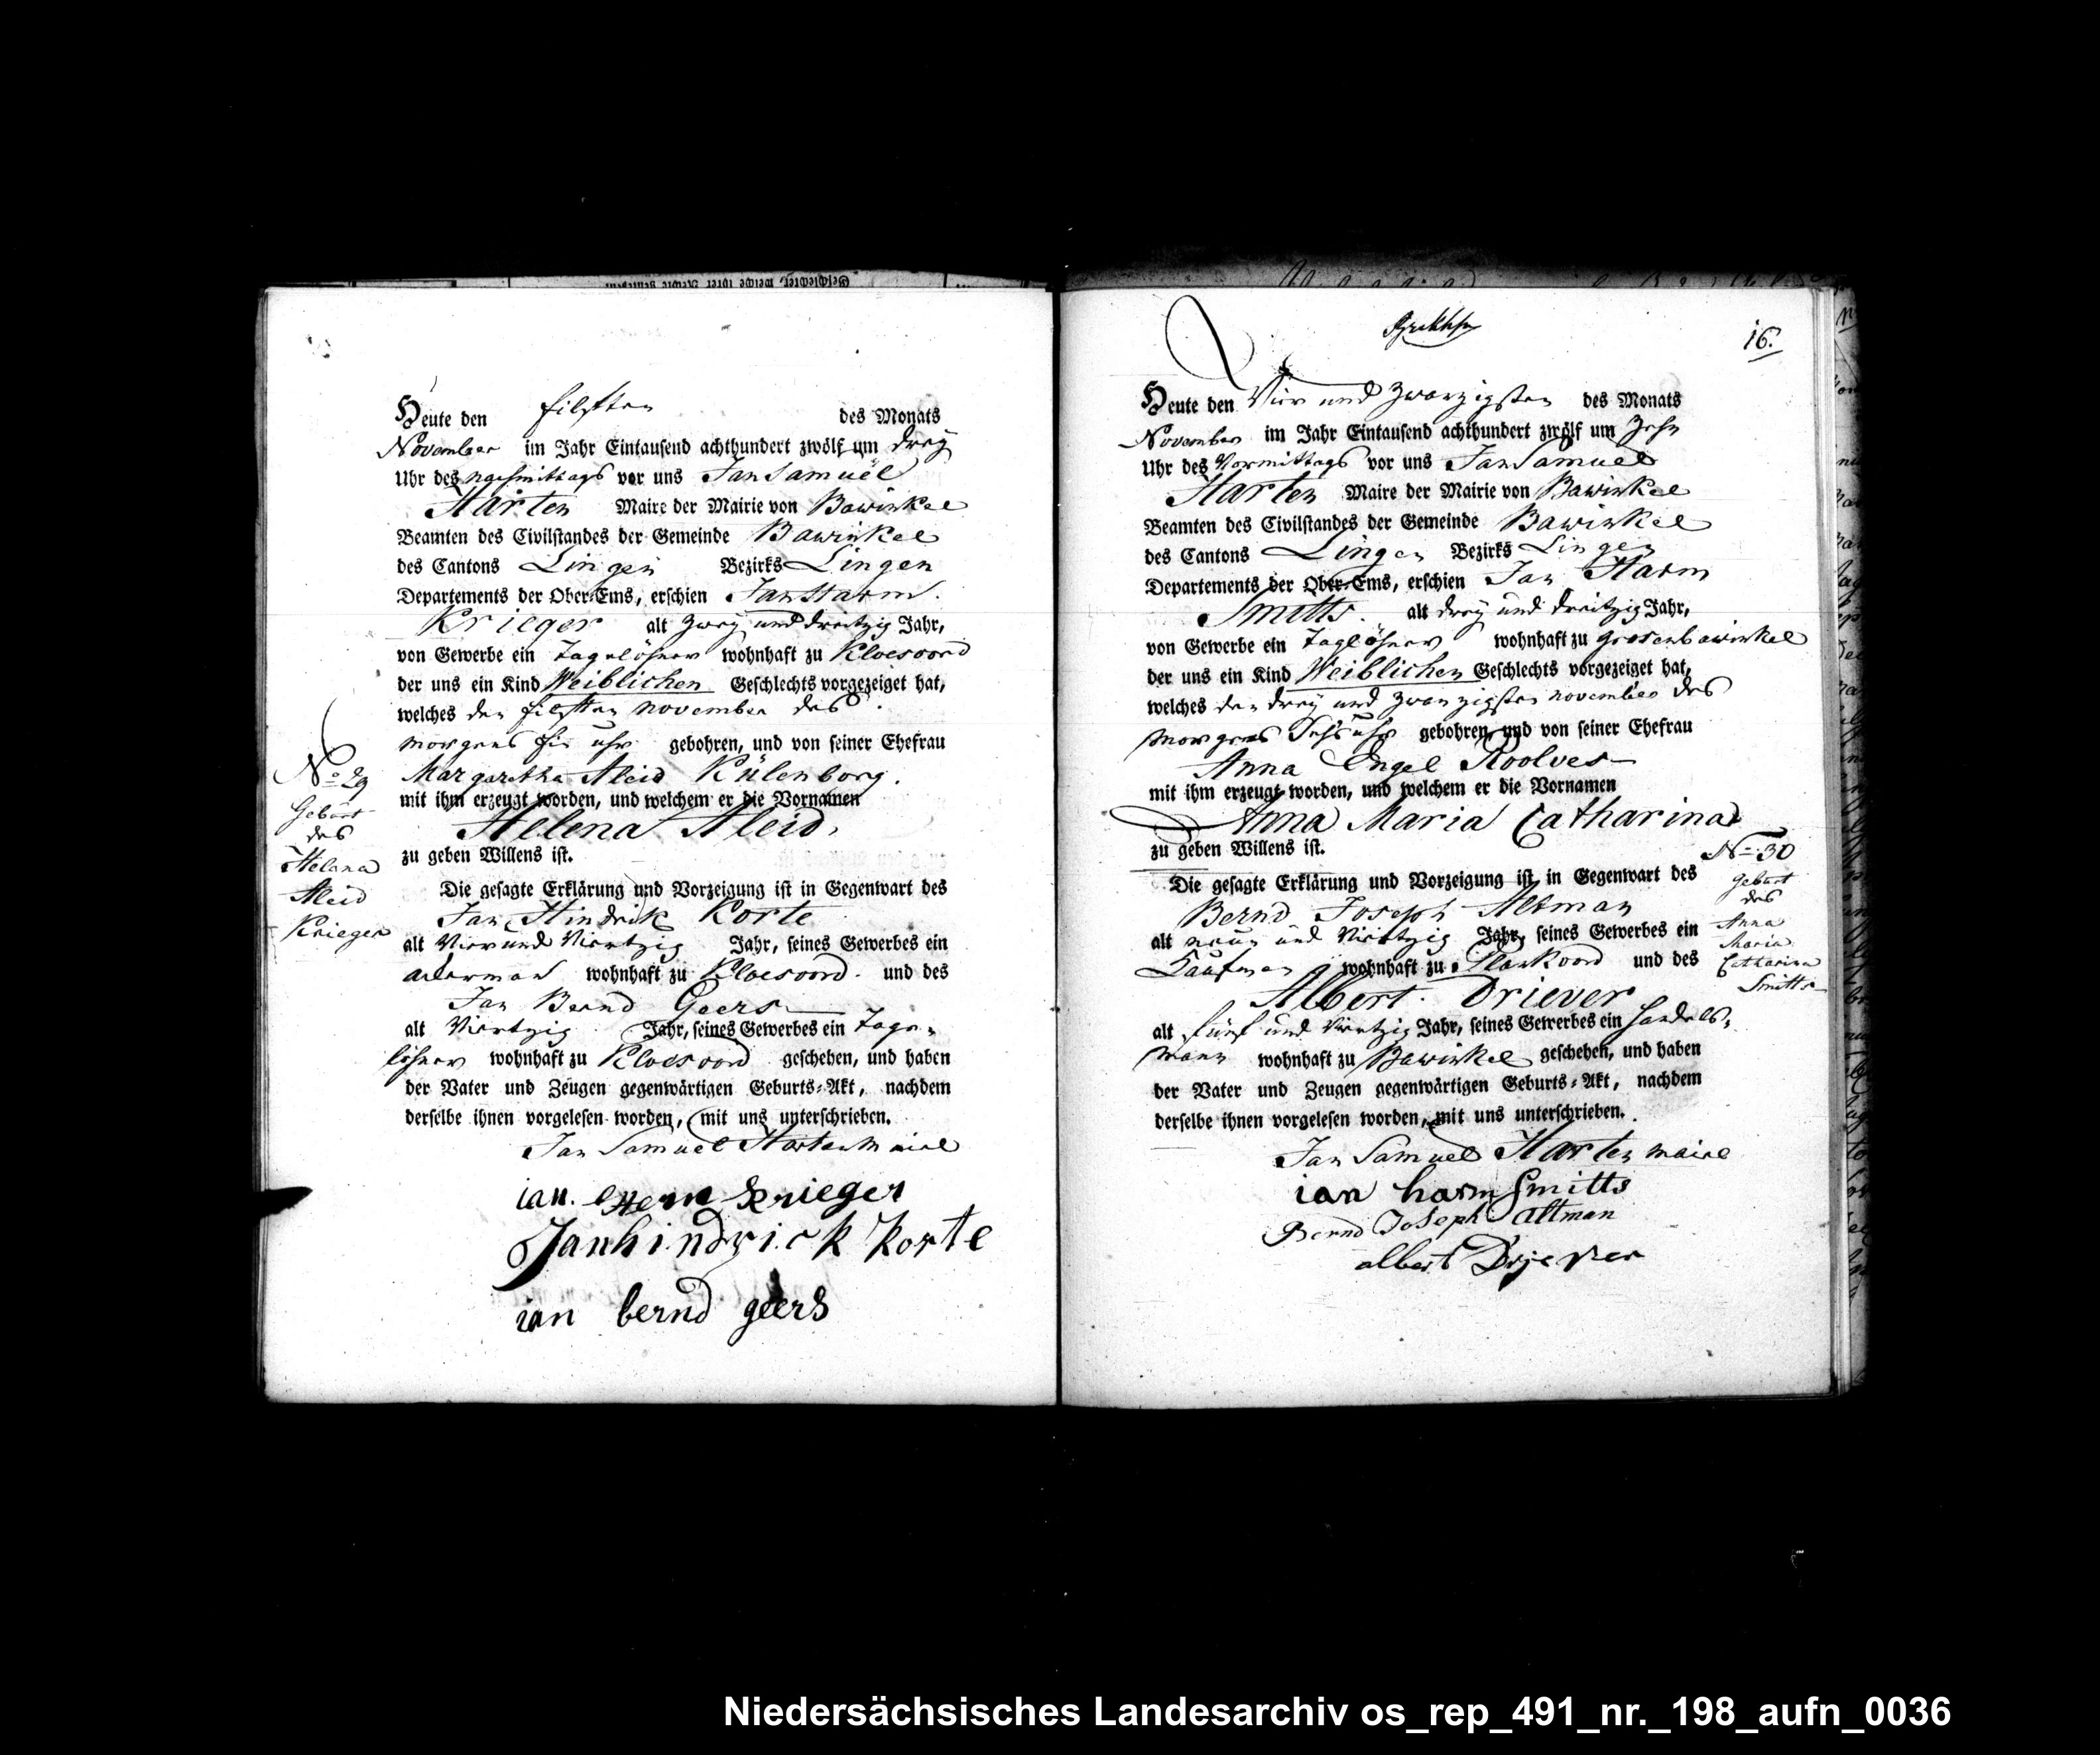 Heute den Eilften des Monats
November im Jahr Eintausend achthundert zwölf um drey
Uhr des nachmittags vor uns Jan Samuel
Harten Maire der Mairie von Bawinkel
Beamten des Civilstandes der Gemeinde Bawinkel
des Cantons Lingen Bezirks Lingen
Departements der Ober-Ems, erschien Jan Harm
Krieger alt zwey und dreitzig Jahr,
von Gewerbe ein Tagelöhner wohnhaft zu Kloesoord
der uns ein Kind Weiblichen Geschlechts vorgezeiget hat,
welches den Eilften november des
morgens uhr gebohren, und von seiner Ehefrau
Margaretha Aleid Külenborg.
mit ihm erzeugt worden, und welchem er die Vornamen
Helena Aleid,
zu geben Willens ist.
Die gesagte Erklärung und Vorzeigung ist in Gegenwart des
Jan Hindrik Korte
alt Vier und Viertzig Jahr, seines Gewerbes ein
ackerman wohnhaft zu Kloesoord. und des
Jan Bernd Geers
alt Viertzig Jahr, seines Gewerbes ein Tage-
löhner wohnhaft zu Kloesoord geschehen, und haben
der Vater und Zeugen gegenwärtigen Geburts-Akt, nachdem
derselbe ihnen vorgelesen worden, mit uns unterschrieben.
Jan Samuel Harten Maire
ian. Krieger
Janhindrick Korte
ian bernd geers
No 29
Geburt
des
Helena
Aleid
Krieger
16.
Heute den Vier und Zwanzigsten des Monats
November im Jahr Eintausend achthundert zwölf um Zehn
Uhr des Vormittags vor uns Jan Samuel
Harten Maire der Mairie von Bawinkel
Beamten des Civilstandes der Gemeinde Bawinkel
des Cantons Lingen Bezirks Lingen
Departements der Ober-Ems, erschien Jan Harm
Smitts. alt drey und dreitzig Jahr,
von Gewerbe ein Taglöhner wohnhaft zu grosenbawinkel
der uns ein Kind Weiblichen Geschlechts vorgezeiget hat,
welches den drey und zwanzigsten november des
morgens uhr gebohren, und von seiner Ehefrau
Anna Engel Roolves
mit ihm erzeugt worden, und welchem er die Vornamen
Anna Maria Catharina
zu geben Willens ist.
Die gesagte Erklärung und Vorzeigung ist in Gegenwart des
Bernd Joseph Altman
alt neun und Viertzig Jahr, seines Gewerbes ein
Kaufman wohnhaft zu Plankoord und des
Albert Driever
alt fünf und Viertzig Jahr, seines Gewerbes ein handels-
mann wohnhaft zu Bawinkel geschehen, und haben
der Vater und Zeugen gegenwärtigen Geburts-Akt, nachdem
derselbe ihnen vorgelesen worden, mit uns unterschrieben.
Jan Samuel Harten maire
ian harm Smitts
Bernd Joseph Altman
albert Driever
No 30
Geburt
des
Anna
Maria
Catharina
Smitts
Niedersächsisches Landesarchiv os_rep_491_nr._198_aufn_0036